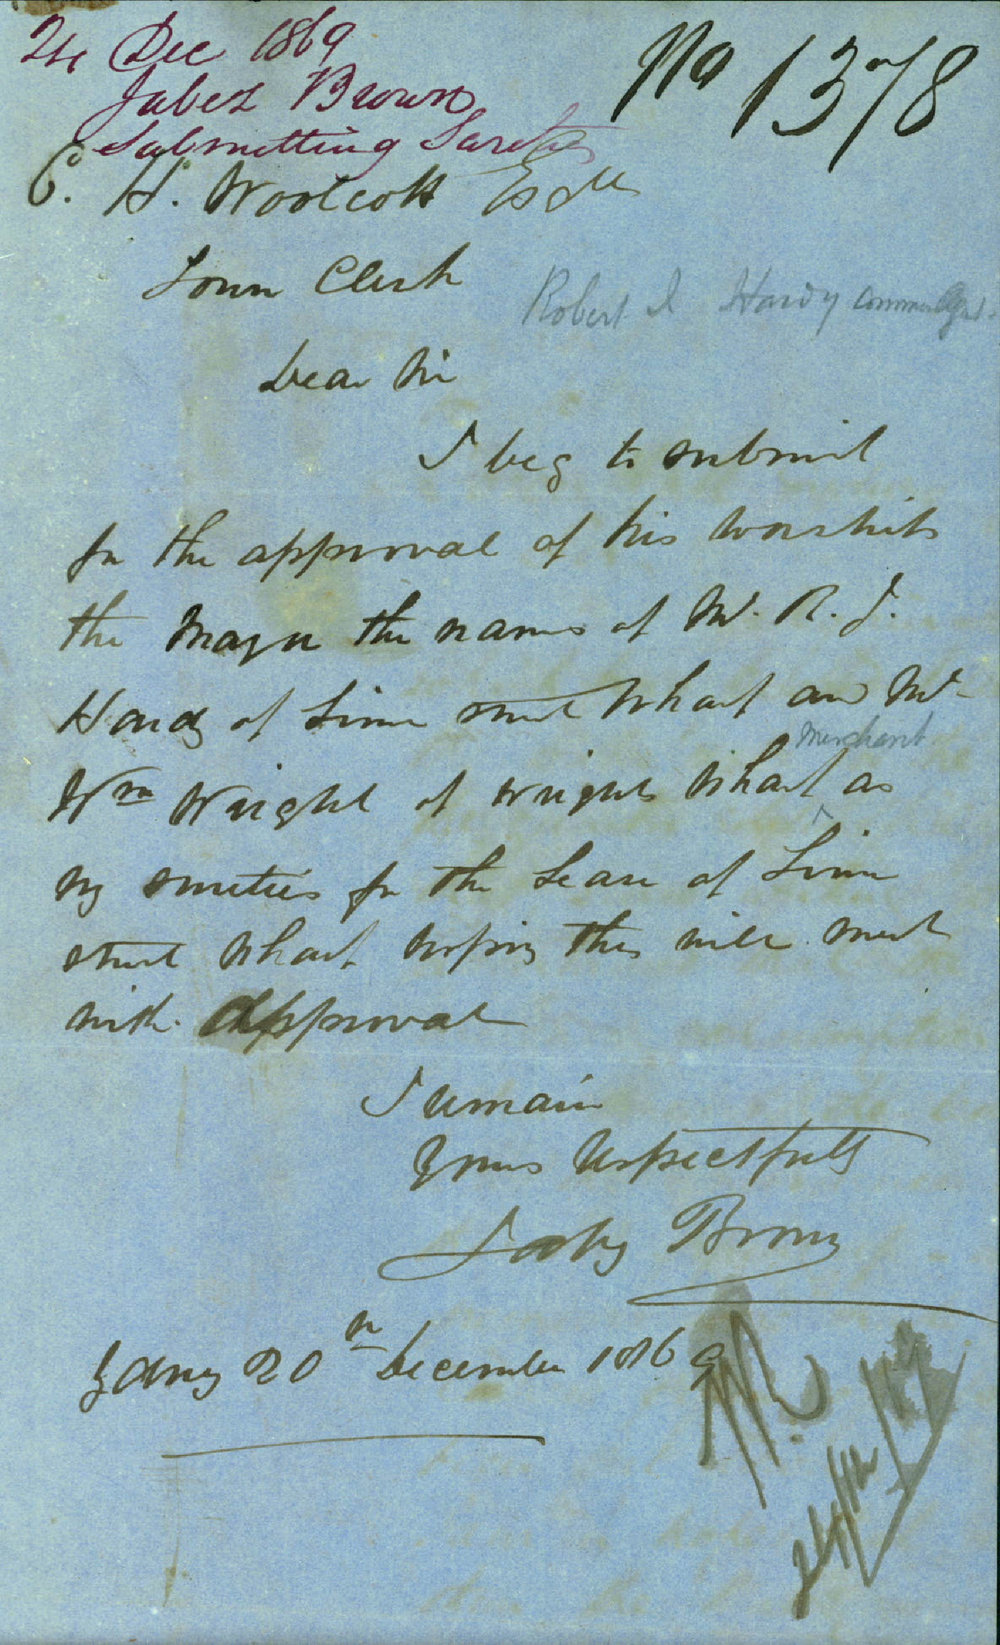 24 Dec 1869
Jabez Brown
Submitting Sureties
No 1378
C. H. Woolcott Esqre
Town Clerk
Robert J Hardy
Dear Sir
I beg to submit
for the approval of his worship
the Mayor the names of Mr. R. J.
Hardy of Lime street Wharf and Mr
merchant
Wm Wright of Wrights Wharf ^ as
my sureties for the Lease of Lime
street Wharf hoping this will meet
with approval
I remain
Yours respectfully
Jabez Brown
Sydney 20th December 1869